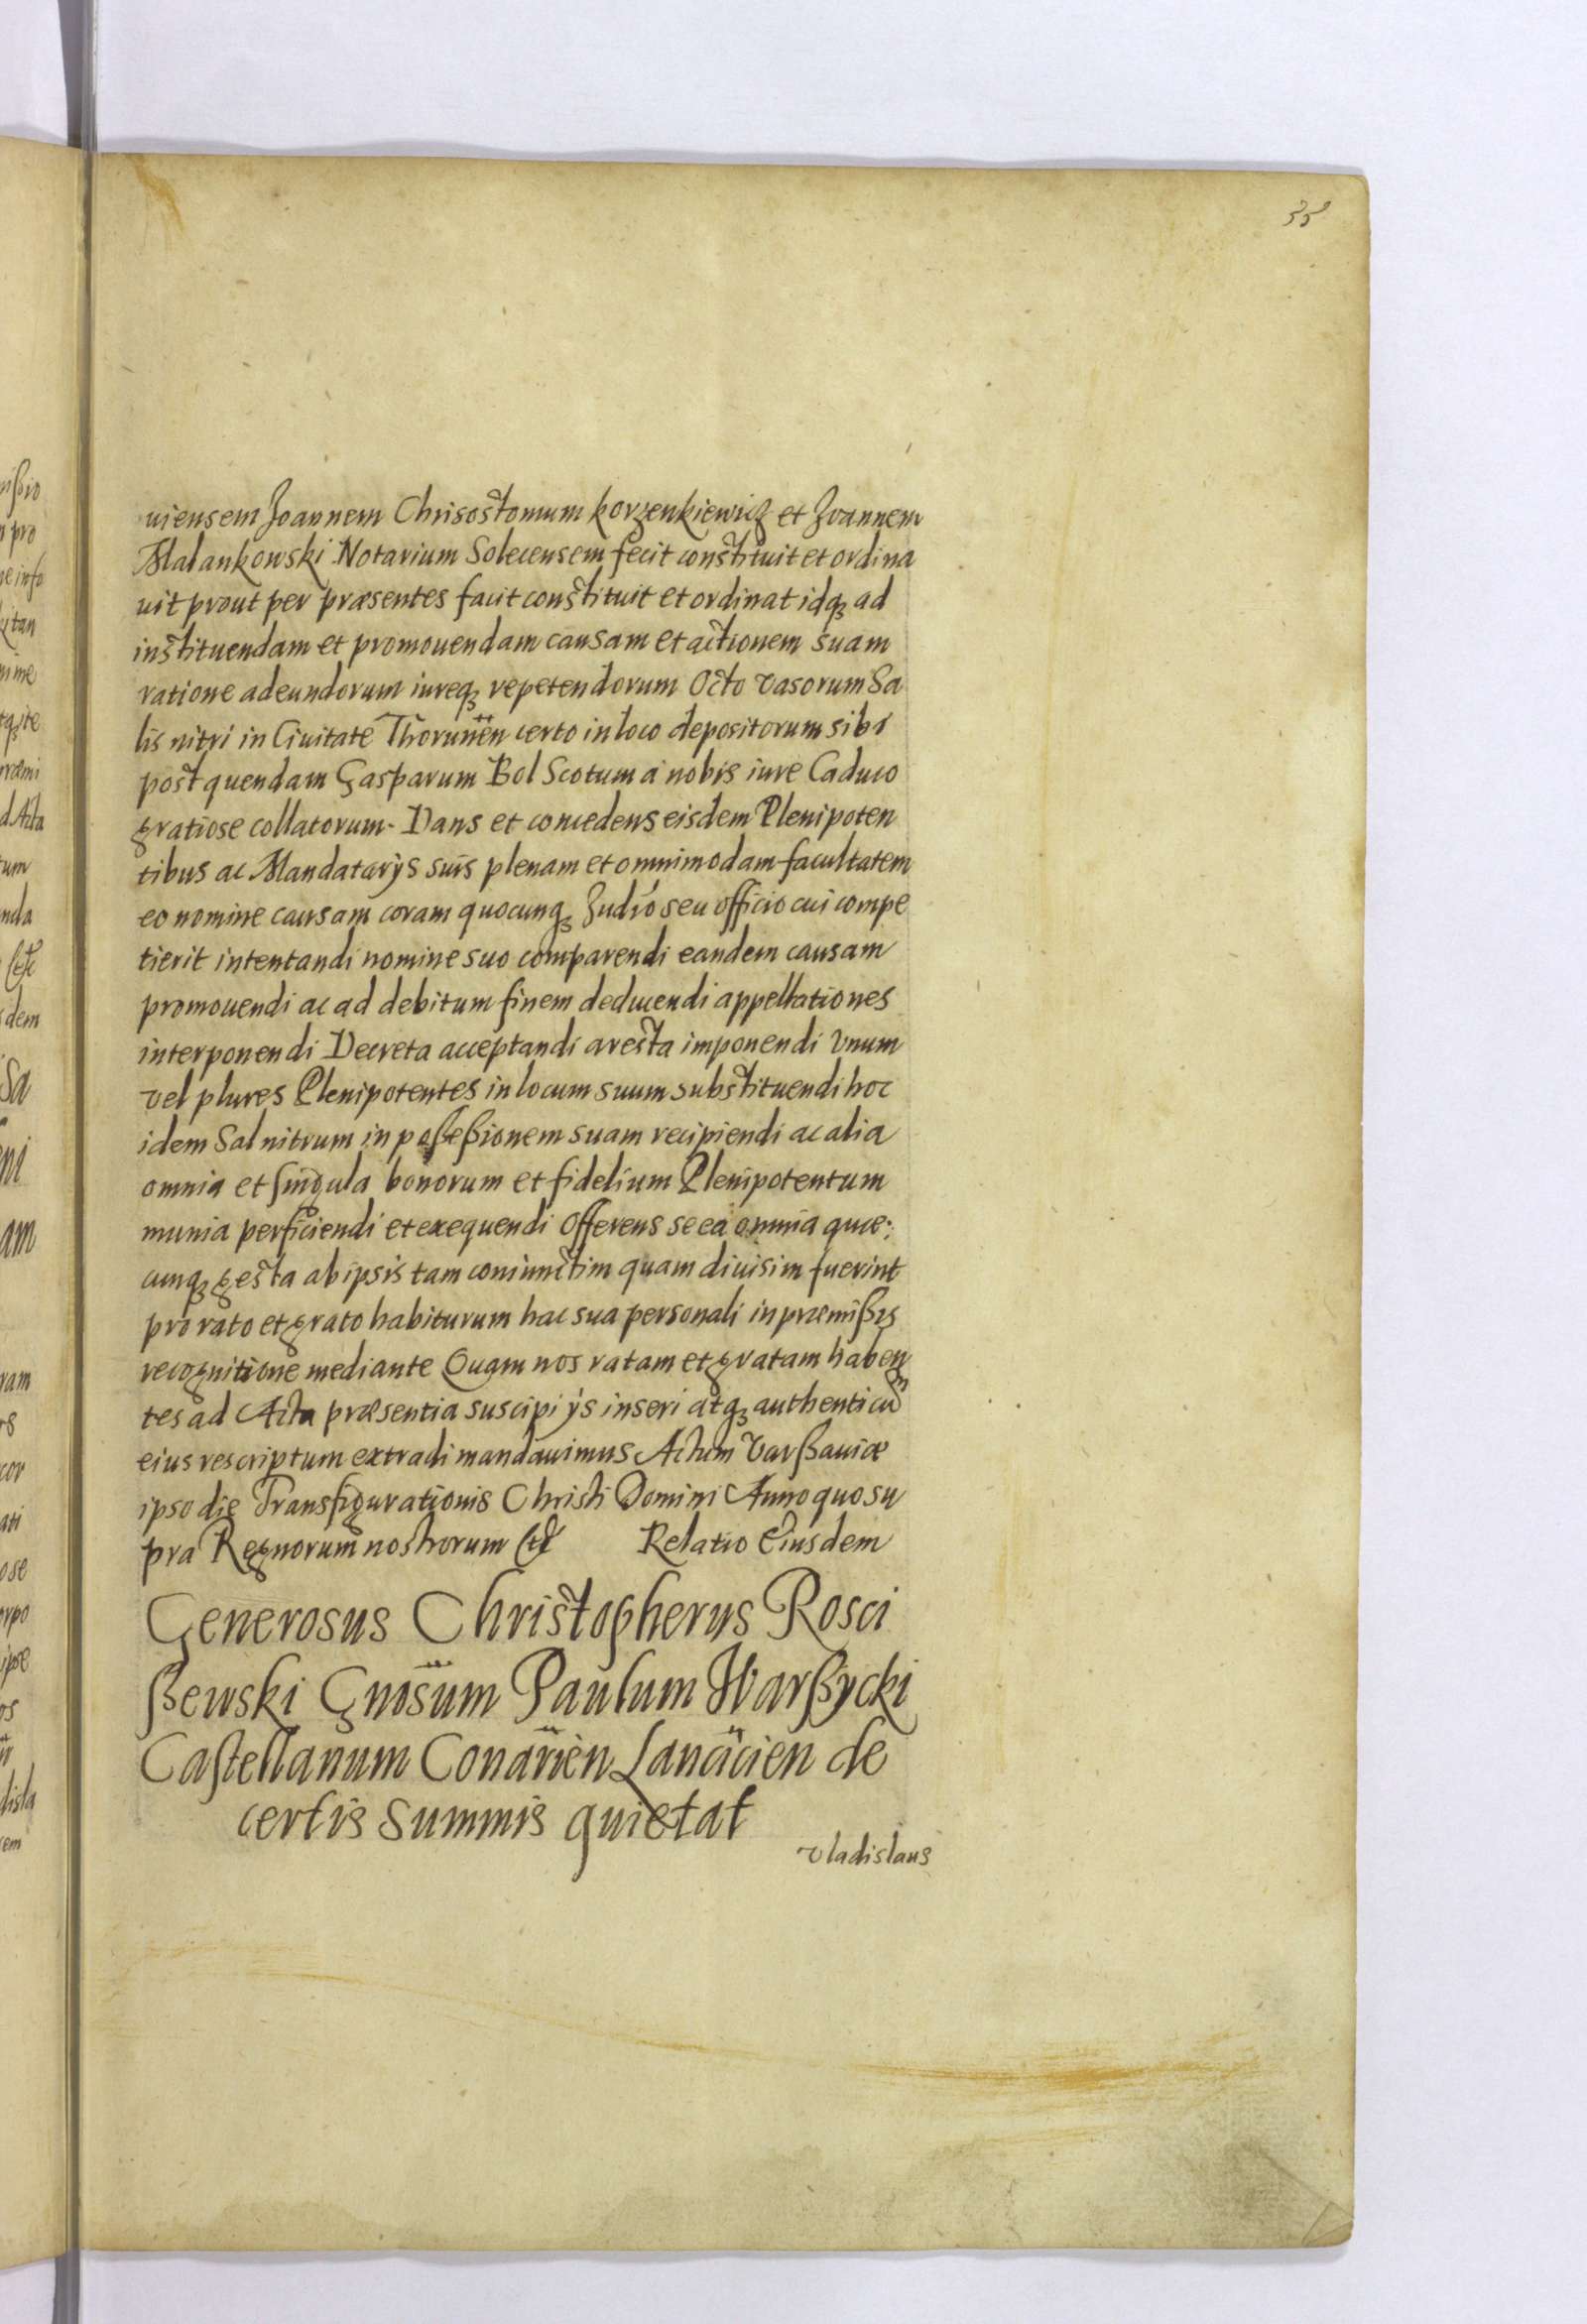 35
uiensem Joannem Chrisostomum korzenkiewicz et Joannem
Malankowski Notarium Solecensem fecit constituit et ordina
uit prout per præsentes facit constituit et ordinat idq; ad
instituendam et promouendam causam et actionem suam
ratione adeundorum iureq; repetendorum Octo vasorum Sa
lis nitri in Ciuitate Thorunen certo in loco depositorum sibi
post quendam Gasparum Bol Scotum a nobis iure Caduco
gratiose collatorum. Dans et concedens eisdem Plenipoten
tibus ac Mandatarÿs suis plenam et omnimodam facultatem
eo nomine causam coram quocunq; Judio seu officio cui compe
tierit intentandi nomine suo comparendi eandem causam
promouendi ac ad debitum finem deducendi appellationes
interponendi Decreta acceptandi aresta imponendi Vnum
vel plures Plenipotentes in locum suum substituendi hoc
idem Salnitrum in poßeßionem suam recipiendi ac alia
omnia et singula bonorum et fidelium Plenipotentum
munia perficiendi et exequendi Offerens se ea omnia quæ:
cunq; gesta ab ipsis tam coniunctim quam diuisim fuerint
pro rato et grato habiturum hac sua personali in præmißis
recognitione mediante Quam nos ratam et gratam haben
tes ad Acta præsentia suscipi ÿs inseri atq; authenticum
eius rescriptum extradi mandauimus Actum Varßauiæ
ipso die Transfigurationis Christi Domini Anno quo su
pra Regnorum nostrorum etc Relatio Eiusdem
Generosus Christopherus Rosci
ßewski Gnosum Paulum Warßycki
Castellanum Conarien Lancicien de
certis summis quietat
Vladislaus